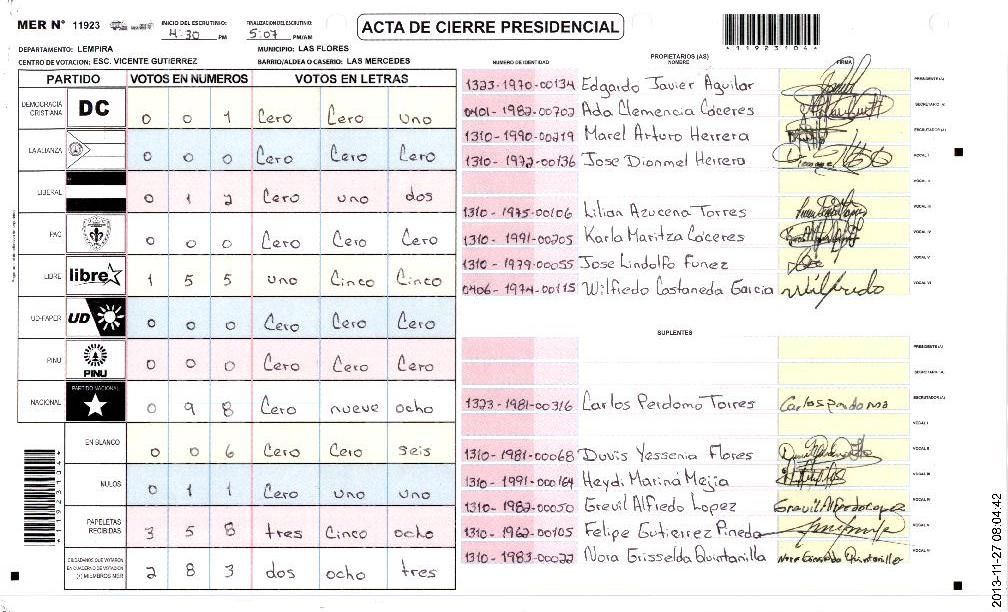 MER Nº 11923
INICIO DEL ESCRUTINIO: 4:30 PM
FINALIZACION DEL ESCRUTINIO: 5:07 PM/AM
ACTA DE CIERRE PRESIDENCIAL
11923104
DEPARTAMENTO: LEMPIRA
MUNICIPIO: LAS FLORES
CENTRO DE VOTACION: ESC. VICENTE GUTIERREZ
BARRIO/ALDEA O CASERIO: LAS MERCEDES
PARTIDO VOTOS EN NUMEROS VOTOS EN LETRAS
DEMOCRACIA CRISTIANA DC 0 0 1 Cero Cero uno
LA ALIANZA 0 0 0 Cero Cero Cero
LIBERAL 0 1 2 Cero uno dos
PAC 0 0 0 Cero Cero Cero
LIBRE libre 1 5 5 uno Cinco Cinco
UD-FAPER UD 0 0 0 Cero Cero Cero
PINU PINU 0 0 0 Cero Cero Cero
NACIONAL PARTIDO NACIONAL 0 9 8 Cero nueve ocho
EN BLANCO 0 0 6 Cero Cero seis
NULOS 0 1 1 Cero uno uno
PAPELETAS RECIBIDAS 3 5 8 tres Cinco ocho
CIUDADANOS QUE VOTARON EN CUADERNO DE VOTACION (+) MIEMBROS MER 2 8 3 dos ocho tres
PROPIETARIOS (AS)
NUMERO DE IDENTIDAD NOMBRE FIRMA
1323-1970-00134 Edgardo Javier Aguilar PRESIDENTE (A)
0401-1982-00702 Ada Clemencia Cáceres SECRETARIO (A)
1310-1990-00219 Marel Arturo Herrera ESCRUTADOR (A)
1310-1972-00136 Jose Dionmel Herrera VOCAL I
VOCAL II
1310-1975-00106 Lilian Azucena Torres VOCAL III
1310-1991-00205 Karla Maritza Cáceres VOCAL IV
1310-1979-00055 Jose Lindolfo Funez VOCAL V
0406-1974-00115 Wilfredo Castaneda Garcia Wilfredo VOCAL VI
SUPLENTES
PRESIDENTE (A)
SECRETARIA (A)
1323-1981-00316 Carlos Perdomo Torres Carlos perdomo ESCRUTADOR (A)
VOCAL I
1310-1981-00068 Duvis Yessenia Flores VOCAL II
1310-1991-000164 Heydi Marina Mejia VOCAL III
1310-1982-00050 Greuil Alfredo Lopez Greuil Alfredo Lopez VOCAL IV
1310-1962-00105 Felipe Gutierrez Pineda VOCAL V
1310-1983-00022 Nora Grisselda Quintanilla VOCAL VI
11923104
2013-11-27 08:04:42